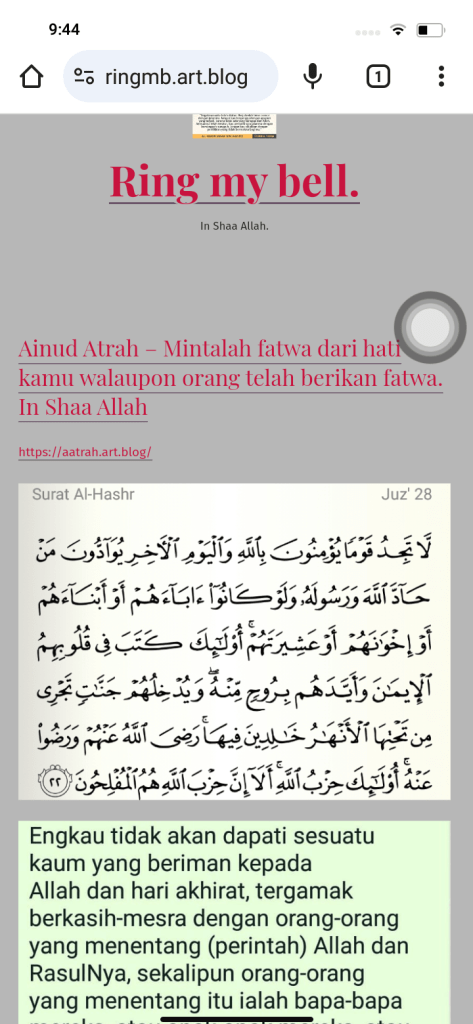 9:44
ringmb.art.blog
1
Ring my bell.
In Shaa Allah.
Ainud Atrah – Mintalah fatwa dari hati
kamu walaupon orang telah berikan fatwa.
In Shaa Allah
https://aatrah.art.blog/
Surat Al-Hashr Juz' 28
لَّا تَجِدُ قَوْمًا يُؤْمِنُونَ بِاللَّهِ وَالْيَوْمِ الْآخِرِ يُوَآدُّونَ مَنْ
حَآدَّ اللَّهَ وَرَسُولَهُۥ وَلَوْ كَانُوٓا۟ ءَابَآءَهُمْ أَوْ أَبْنَآءَهُمْ
أَوْ إِخْوَٰنَهُمْ أَوْ عَشِيرَتَهُمْ ۚ أُو۟لَٰٓئِكَ كَتَبَ فِى قُلُوبِهِمُ
الْإِيمَٰنَ وَأَيَّدَهُم بِرُوحٍ مِّنْهُ ۖ وَيُدْخِلُهُمْ جَنَّٰتٍ تَجْرِى
مِن تَحْتِهَا الْأَنْهَٰرُ خَٰلِدِينَ فِيهَا ۚ رَضِىَ اللَّهُ عَنْهُمْ وَرَضُوا۟
عَنْهُ ۚ أُو۟لَٰٓئِكَ حِزْبُ اللَّهِ ۚ أَلَآ إِنَّ حِزْبَ اللَّهِ هُمُ الْمُفْلِحُونَ ٢٢
Engkau tidak akan dapati sesuatu
kaum yang beriman kepada
Allah dan hari akhirat, tergamak
berkasih-mesra dengan orang-orang
yang menentang (perintah) Allah dan
RasulNya, sekalipun orang-orang
yang menentang itu ialah bapa-bapa